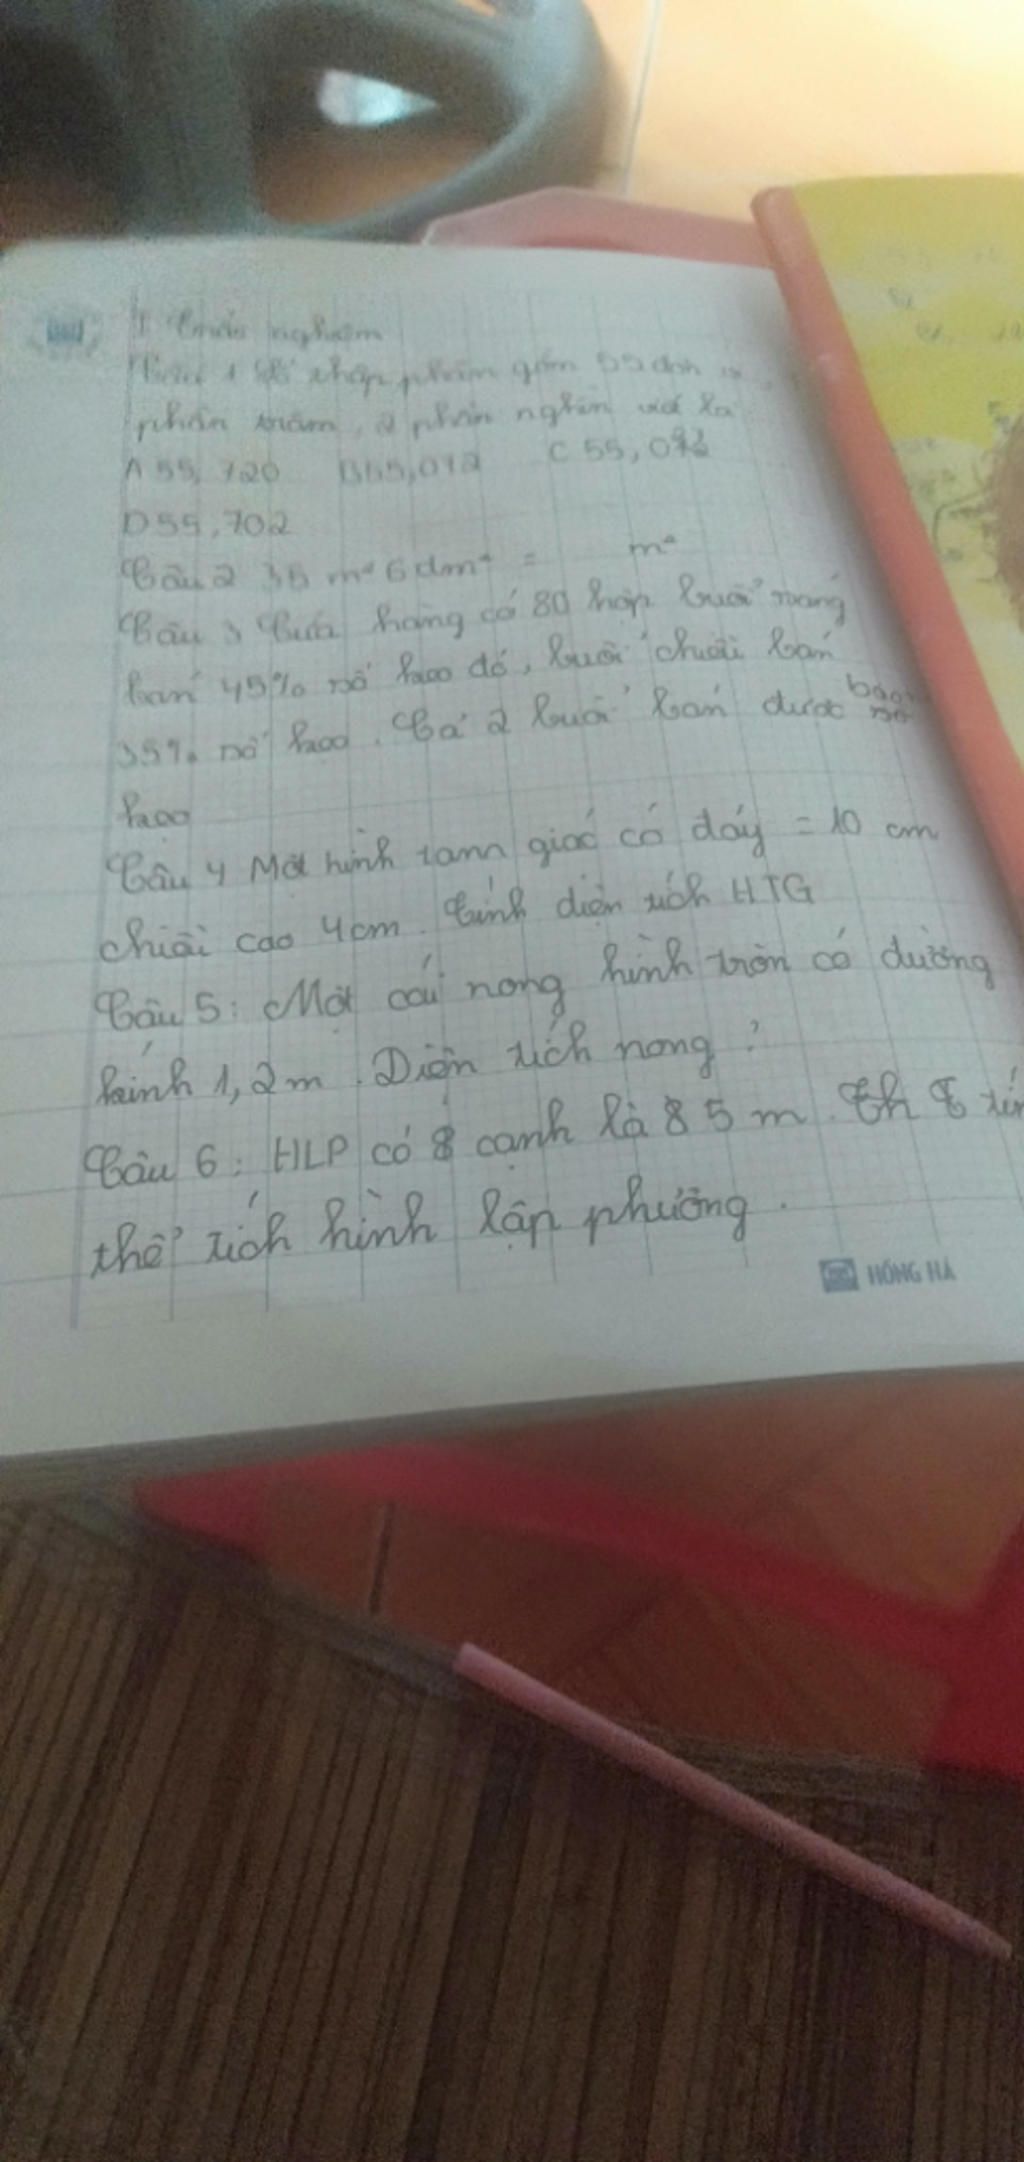 I Trắc nghiệm
Câu 1 Số thập phân gồm 55 đơn vị,
phần trăm, 2 phần nghìn viết là
A 55,720 B 55,072 C 55,0
D 55,702
Câu 2 35 m² 6 dm² = m²
Câu 3 Cửa hàng có 80 hộp buổi sáng
bán 45% số kẹo đó, buổi chiều bán
35% số kẹo. Cả 2 buổi bán được bao
số
kẹo
Câu 4 Một hình tam giác có đáy = 10 cm
chiều cao 4cm. Tính diện tích HTG
Câu 5: Một cái nong hình tròn có đường
kính 1,2m. Diện tích nong?
Câu 6: HLP có 8 cạnh là 8 5 m. Th
thể tích hình lập phương.
HỒNG HÀ